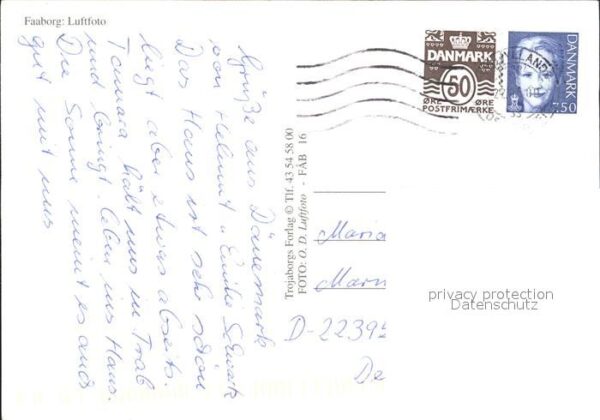 Faaborg: Luftfoto
Grüße aus Dänemark
von Helmut u. Emilie Schwarz
Das Haus ist sehr schön
liegt aber etwas abseits.
Tamara hält uns in Trab
und bringt Leben ins Haus.
Die Sonne meint es auch
gut mit uns
Trojaborgs Forlag © Tlf. 43 54 58 00
FOTO: O. D. Luftfoto - FÅB 16
DANMARK
50
ØRE ØRE
POSTFRIMÆRKE
DANMARK
7.50
Maria
D-22395
privacy protection
Datenschutz